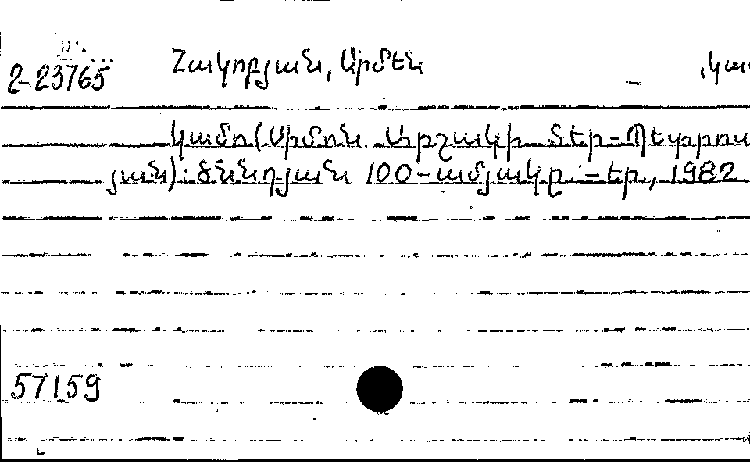 2-23765 Հակոբյան, Արմեն ,կա
Կամո (Սիմոն Արշակի Տեր-Պետրոս
յան): Ծննդյան 100-ամյակը: -Եր., 1982
57159